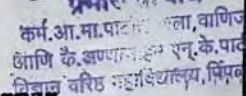 कर्म.आ.मा.पाटील ला, वाणिज
आणि कै.अण्णा एन.के.पाट
विज्ञान वरिष्ठ महाविद्यालय, पिंपळ